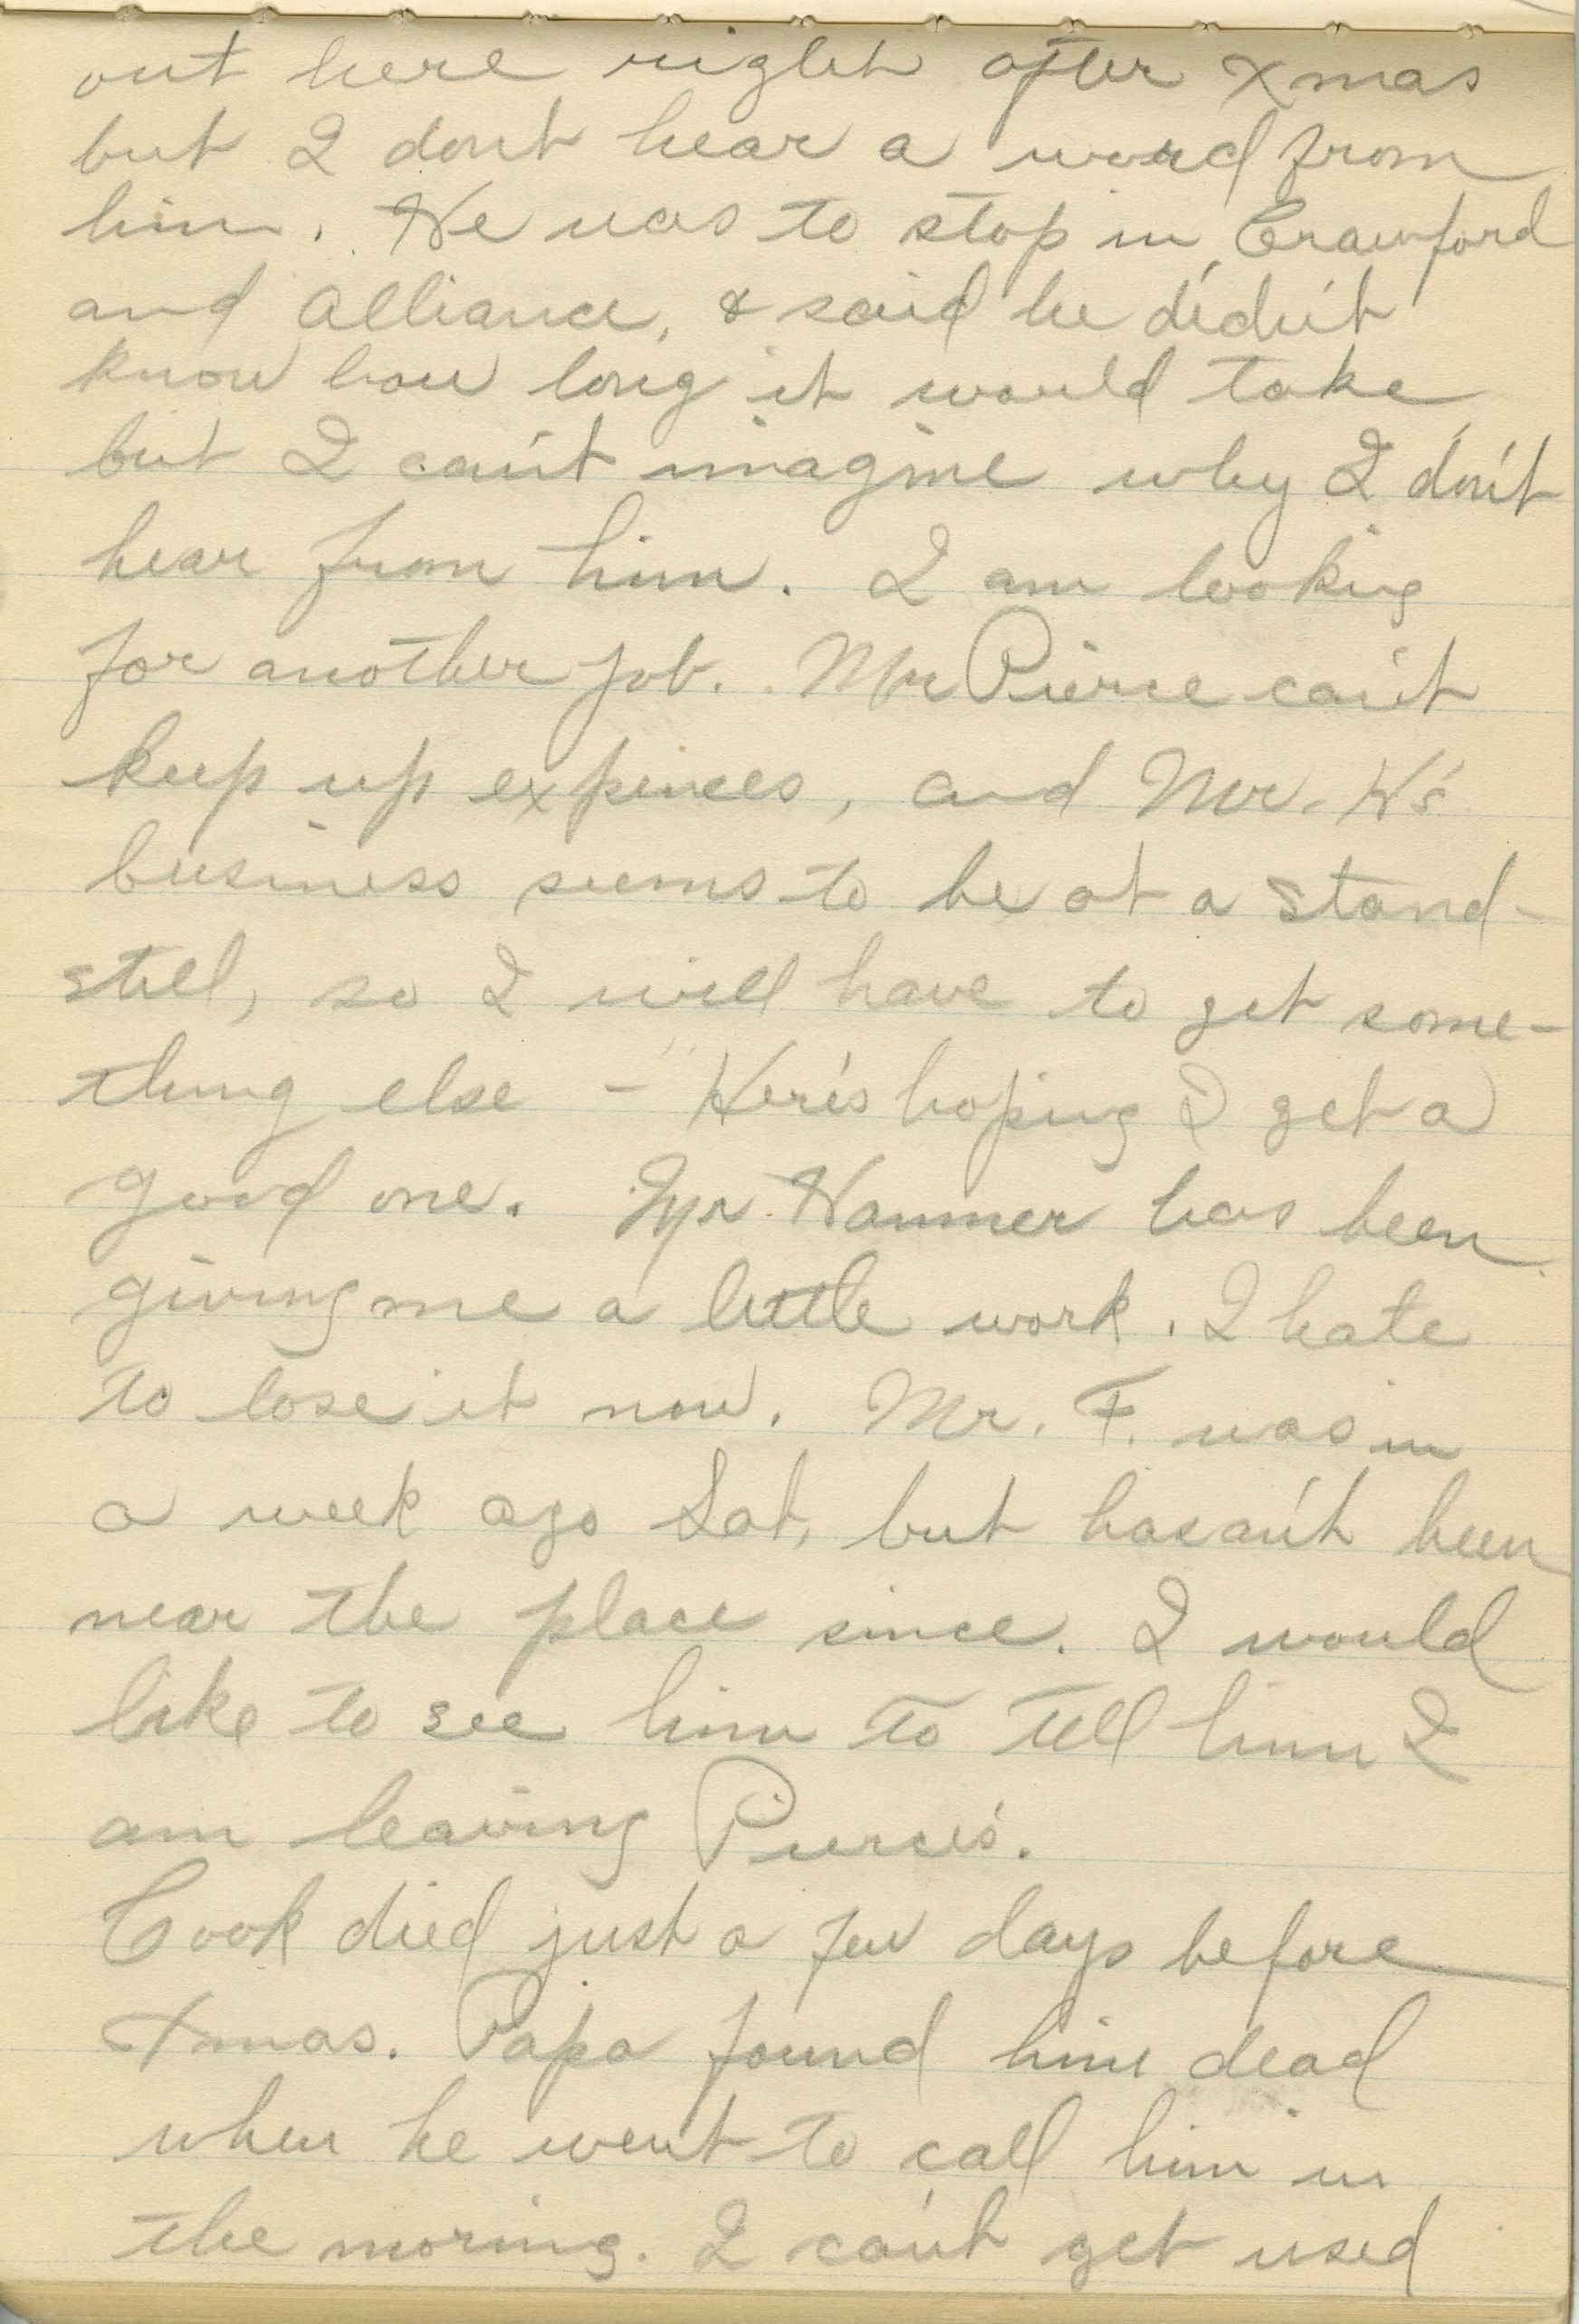 out here right after Xmas
but I don't hear a word from
him. He was to stop in Crawford
and Alliance, & said he didn't
know how long it would take
but I can't imagine why I don't
hear from him. I am looking
for another job. Mr Pierce can't
keep up expences, and Mr. H's
business seems to be at a stand-
still, so I will have to get some-
thing else - Here's hoping I get a
good one. Mr Hammer has been
giving me a little work. I hate
to lose it now. Mr. F. was in
a week ago Sat, but hasan't been
near the place since. I would
like to see him to tell him I
am leaving Pierce's.
Cook died just a few days before
Xmas. Papa found him dead
when he went to call him in
the moring. I can't get used